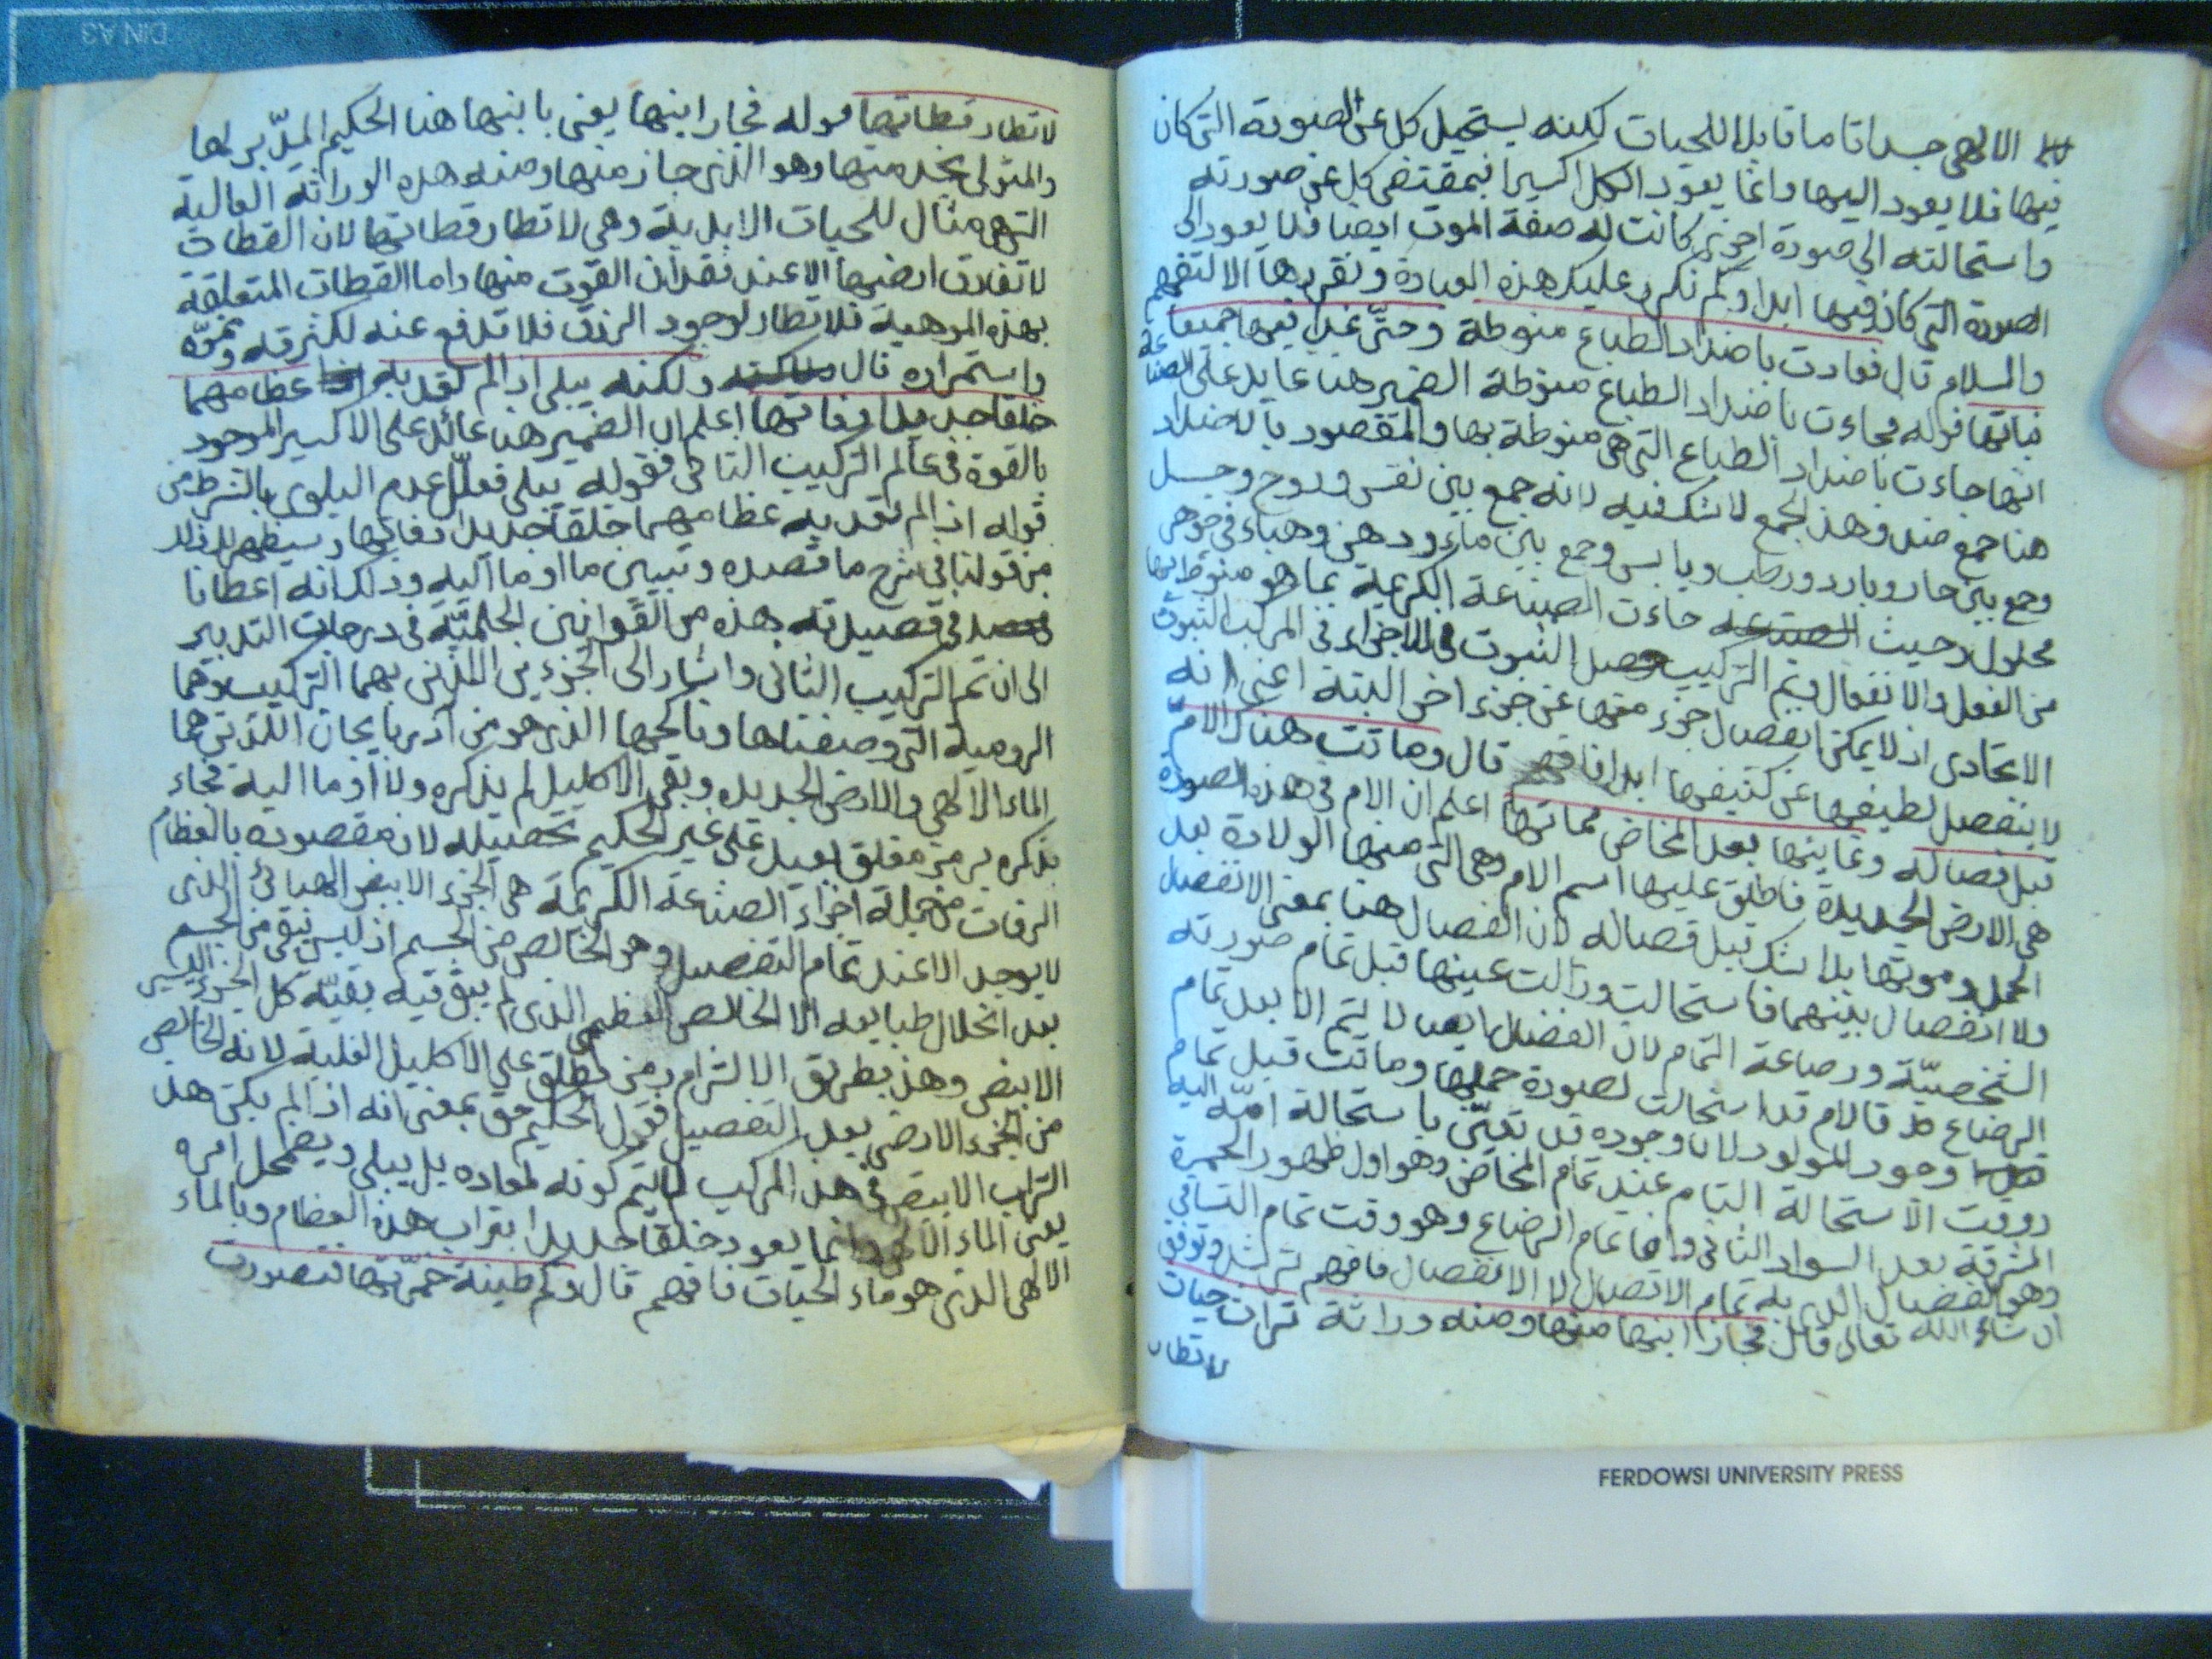 الالهى جسداتا ما قابلا للحيات لكنه يستحيل كل عن الصورة التى كان
فيها فلا يعود اليها وانما يعود الكل اكسيرا فبمقتضى كل عن صورته
واستحالته الى صورة اخرى كانت له صفة الموت ايضا فلا يعود الى
الصورة التى كان فيها ابدا وكم نكرر عليك هذه العبادة ونقررها الا لتفهم
والسلام قال فعادت باضداد الطباع منوطة وحتى غدا فيها جميعا
نباتها قوله فجاءت باضداد الطباع منوطة الضمير هنا عايد على الصنا
عة
انها جاءت باضداد الطباع التى هى منوطة بها والمقصود بالاضداد
هنا جمع ضد وهذا الجمع لا شك فيه لانه جمع بين نفس وروح وجسد
وجمع بين حار وبارد ورطب ويابس وجمع بين ماء ودهن وهباء فى جوهر
محلول وحيث جاءت الصنعة الكريمة بما هو منوط بها
من الفعل والانفعال ويتم التركيب وحصل الثبوت فى الاجزاء فى المركب الثبوت
الاتحادى اذ لا يمكن انفصال جزء منها عن جزء اخر البتة اعنى انه
لا ينفصل لطيفها عن كثيفها ابدا فافهم قال وماتت هناك الام
قبل فصاله وعاينها بعد المخاض مماتها اعلم ان الام فى هذه الصورة
هى الارض الجديدة فاطلق عليها اسم الام وهى التى منها الولادة بعد
الحمل وموتها بلا شك قبل فصاله لان الفصال هنا بمعنى الانفصال
ولا انفصال بينهما فاستحالت وزالت عينها قبل تمام صورته
الشخصية ورضاعة التمام لان الفصال ايضا لا يتم الا بعد تمام
الرضاع فالام قد استحالت لصورة حملها وماتت قبل تمام
وجود المولود لان وجوده قد تعين باستحالة امه اليه
ووقت الاستحالة التام عند تمام المخاض وهو اول ظهور الحمرة
المشرقة بعد السواد الثانى واما تمام الرضاع وهو وقت تمام التساقى
وهو الفصال الذى به تمام الاتصال لا الانفصال فافهم ترشد وتوفق
ان شاء الله تعالى قال فحاز ابنها منها ومنه وراثة تراث حيات
لا تطار
لا تطار قطاتها قوله فحاز ابنها يعنى بابنها هنا الحكيم المدبر لها
والمتولى بخدمتها وهو الذى حاز منها ومنه هذه الوراثة العالية
التى هى مثال للحيات الابدية وهى لا تطار قطاتها لان القطات
لا تفارق ارضها الا عند فقدان القوت منها واما القطات المتعلقة
بهذه الموهبة فلا تطار لوجود الرزق فلا تدفع عنه لكثرته ونموه
واستمراره قال ولكنه يبلى اذا لم تعد به عظامهما
خلقا جديدا رفاتها اعلم ان الضمير هنا عائد على الاكسير الموجود
بالقوة فى عالم التركيب الثانى فقوله يبلى فعلل عدم البلوى بالشرط من
قوله اذا لم تعد به عظامهما خلقا جديدا رفاتها وسيظهر لك ذلك
من قولنا فى شرح ما قصده وتبيين ما اوما اليه وذلك انه اعطانا
فى قصيدته هذه من القوانين الحكمية فى درجات التدبير
الى ان تم التركيب الثانى واشار الى الجزءين اللذين بهما التركيب وهما
الرومية التى وصفناها وناكحها الذى هو من آذربايجان اللذين هما
الماء الالهى والارض الجديده وبقى الاكليل لم يذكره ولا اوما اليه فجاء
بذكره برمز مغلق بعيد على غير الحكيم تحصيله لان مقصوده بالعظام
الرفات من جملة اجزاء الصنعة الكريمة هى الجزء الابيض الهبائى الذى
لا يوجد الا عند تمام التفصيل وهو الخالص من الجسم اذ ليس يبقى من الجسم
بعد انحلال طبايعه الا الخالص العظمى الذى لم يبق فيه بقية كل الجزء اليسير
الابيض وهذا بطريق الالتزام رمز يطلق على الاكليل الغلبة لانه الخالص
من الجزء الارضى بعد التفصيل فقول الحكيم حق بمعنى انه اذا لم يكن هذا
التراب الابيض فى هذا المركب لم يتم كونه لمعاده بل يبلى ويضمحل امره
يعنى الماء الالهى وانما يعود خلقا جديدا بتراب هذه العظام وبالماء
الالهى الذى هو ماء الحيات فافهم قال وكم طينة خمرتها فتصورت
FERDOWSI UNIVERSITY PRESS
DIN A3